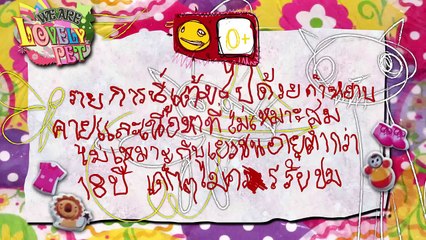 WE ARE
LOVELY
PET
0+
รายการนี้เต็มไปด้วยคำหยาบ
คายและเนื้อหาที่ไม่เหมาะสม
ไม่เหมาะกับเยาวชนอายุต่ำกว่า
18 ปี เด็กไม่ควรรับชม